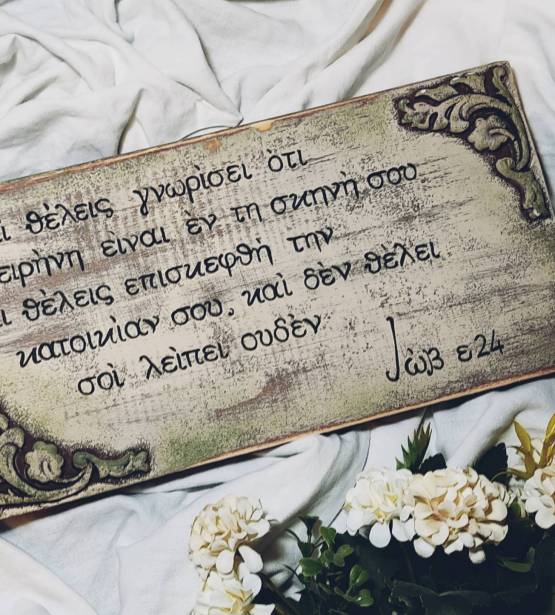 ι θέλεις γνωρὶσει ὁτι
ειρὴνη εὶναι ἐν τη σκηνὴ σου
ι θέλεις επισκεφθὴ την
κατοικὶαν σου, καὶ δὲν θὲλει
σοὶ λεὶπει ουδὲν
Ἰὼβ ε24